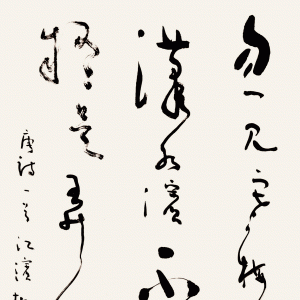 忽見寒梅
漢水濱不
疑是弄
唐詩一首江濱